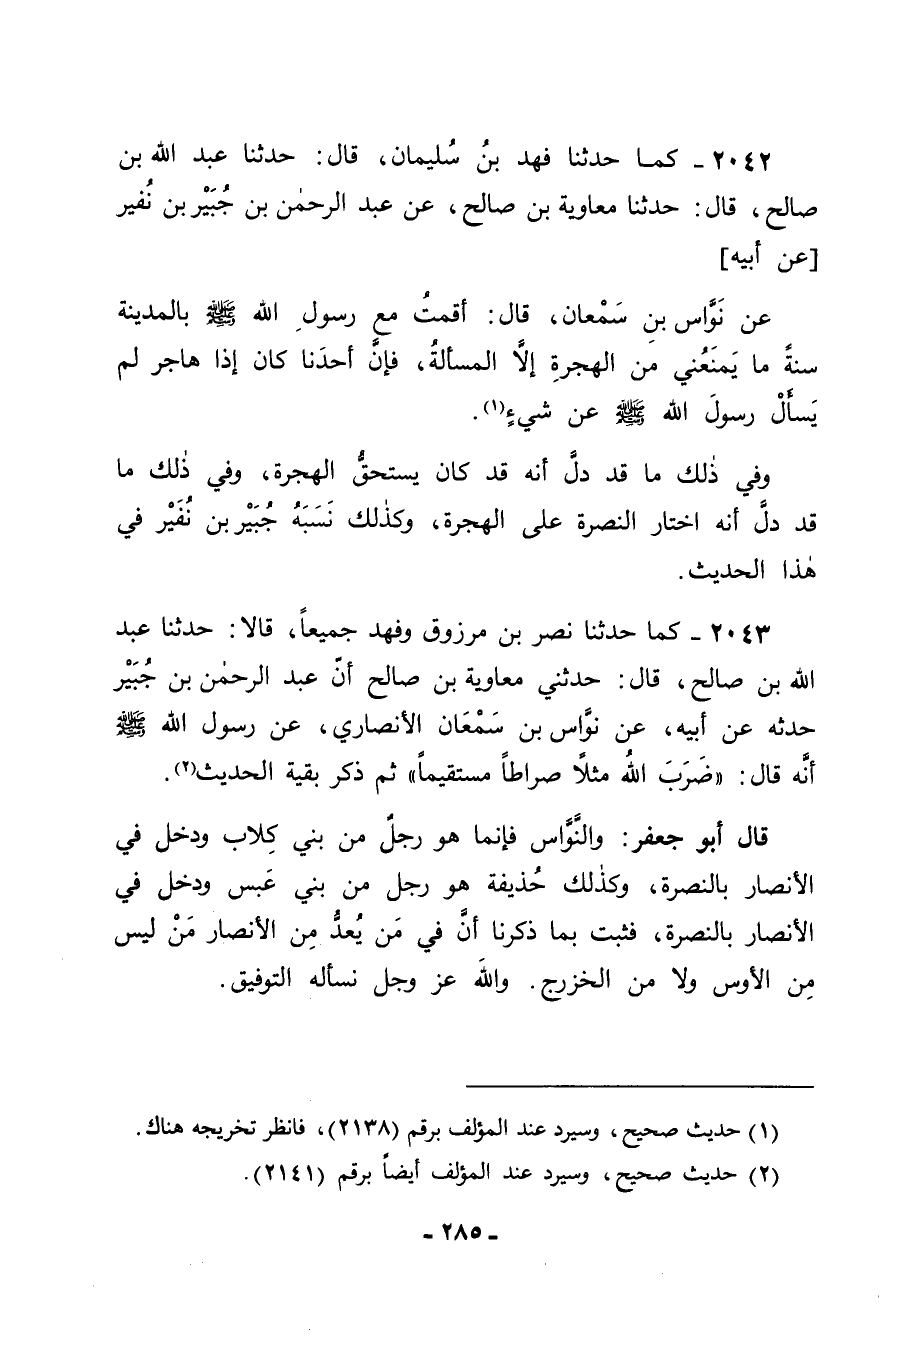 ٢٠٤٢ ـ كمـا حدثنا فهد بنُ سُليمان، قال: حدثنا عبد الله بن
صالح، قال: حدثنا معاوية بن صالح، عن عبد الرحمٰن بن جُبَيْر بن نُفير
[عن أبيه]
عن نَوَّاس بنِ سَمْعان، قال: أقمتُ مع رسولِ الله ﷺ بالمدينة
سنةً ما يَمنَعُني من الهجرةِ إلَّا المسألةُ، فإنَّ أحدَنا كان إذا هاجر لم
يَسأَلْ رسولَ الله ﷺ عن شيءٍ(١).
وفي ذٰلك ما قد دلَّ أنه قد كان يستحقُّ الهجرة، وفي ذٰلك ما
قد دلَّ أنه اختار النصرة على الهجرة، وكذٰلك نَسَبَهُ جُبَيْر بن نُفَيْر في
هٰذا الحديث.
٢٠٤٣ ـ كما حدثنا نصر بن مرزوق وفهد جميعاً، قالا: حدثنا عبد
الله بن صالح، قال: حدثني معاوية بن صالح أنّ عبد الرحمٰن بن جُبَيْر
حدثه عن أبيه، عن نوَّاس بن سَمْعَان الأنصاري، عن رسول الله ﷺ
أنَّه قال: «ضَرَبَ اللهُ مثلًا صراطاً مستقيماً» ثم ذكر بقية الحديث(٢).
قال أبو جعفر: والنَّوَّاس فإنما هو رجلٌ من بني كِلاب ودخل في
الأنصار بالنصرة، وكذٰلك حُذيفة هو رجل من بني عَبس ودخل في
الأنصار بالنصرة، فثبت بما ذكرنا أنَّ في مَن يُعدُّ مِن الأنصار مَنْ ليس
مِن الأوس ولا من الخزرج. واللهَ عز وجل نسأله التوفيق.
(١) حديث صحيح، وسيرد عند المؤلف برقم (٢١٣٨)، فانظر تخريجه هناك.
(٢) حديث صحيح، وسيرد عند المؤلف أيضاً برقم (٢١٤١).
ـ ٢٨٥ ـ